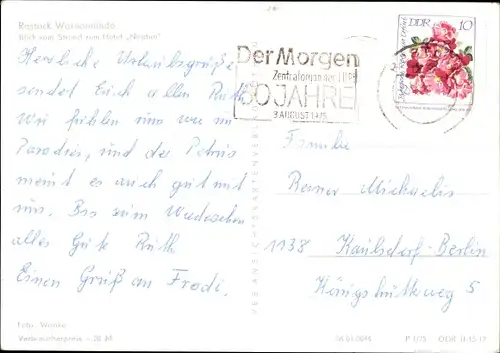 Rostock Warnemünde
Blick vom Strand zum Hotel „Neptun“
Herzliche Urlaubsgrüße
sendet Euch allen Ruth.
Wir fühlen uns wie im
Paradies, und der Petrus
meint es auch gut mit
uns. Bis zum Wiedersehen
alles Gute Ruth
Einen Gruß an Frodi.
Foto: Wenke
Verbraucherpreis 0,20 M
Der Morgen
Zentralorgan der LDPD
30 JAHRE
3. AUGUST 1975
DDR 10
Familie
Michaelis
1138 Kaulsdorf-Berlin
Königshütteweg 5
P 1/75